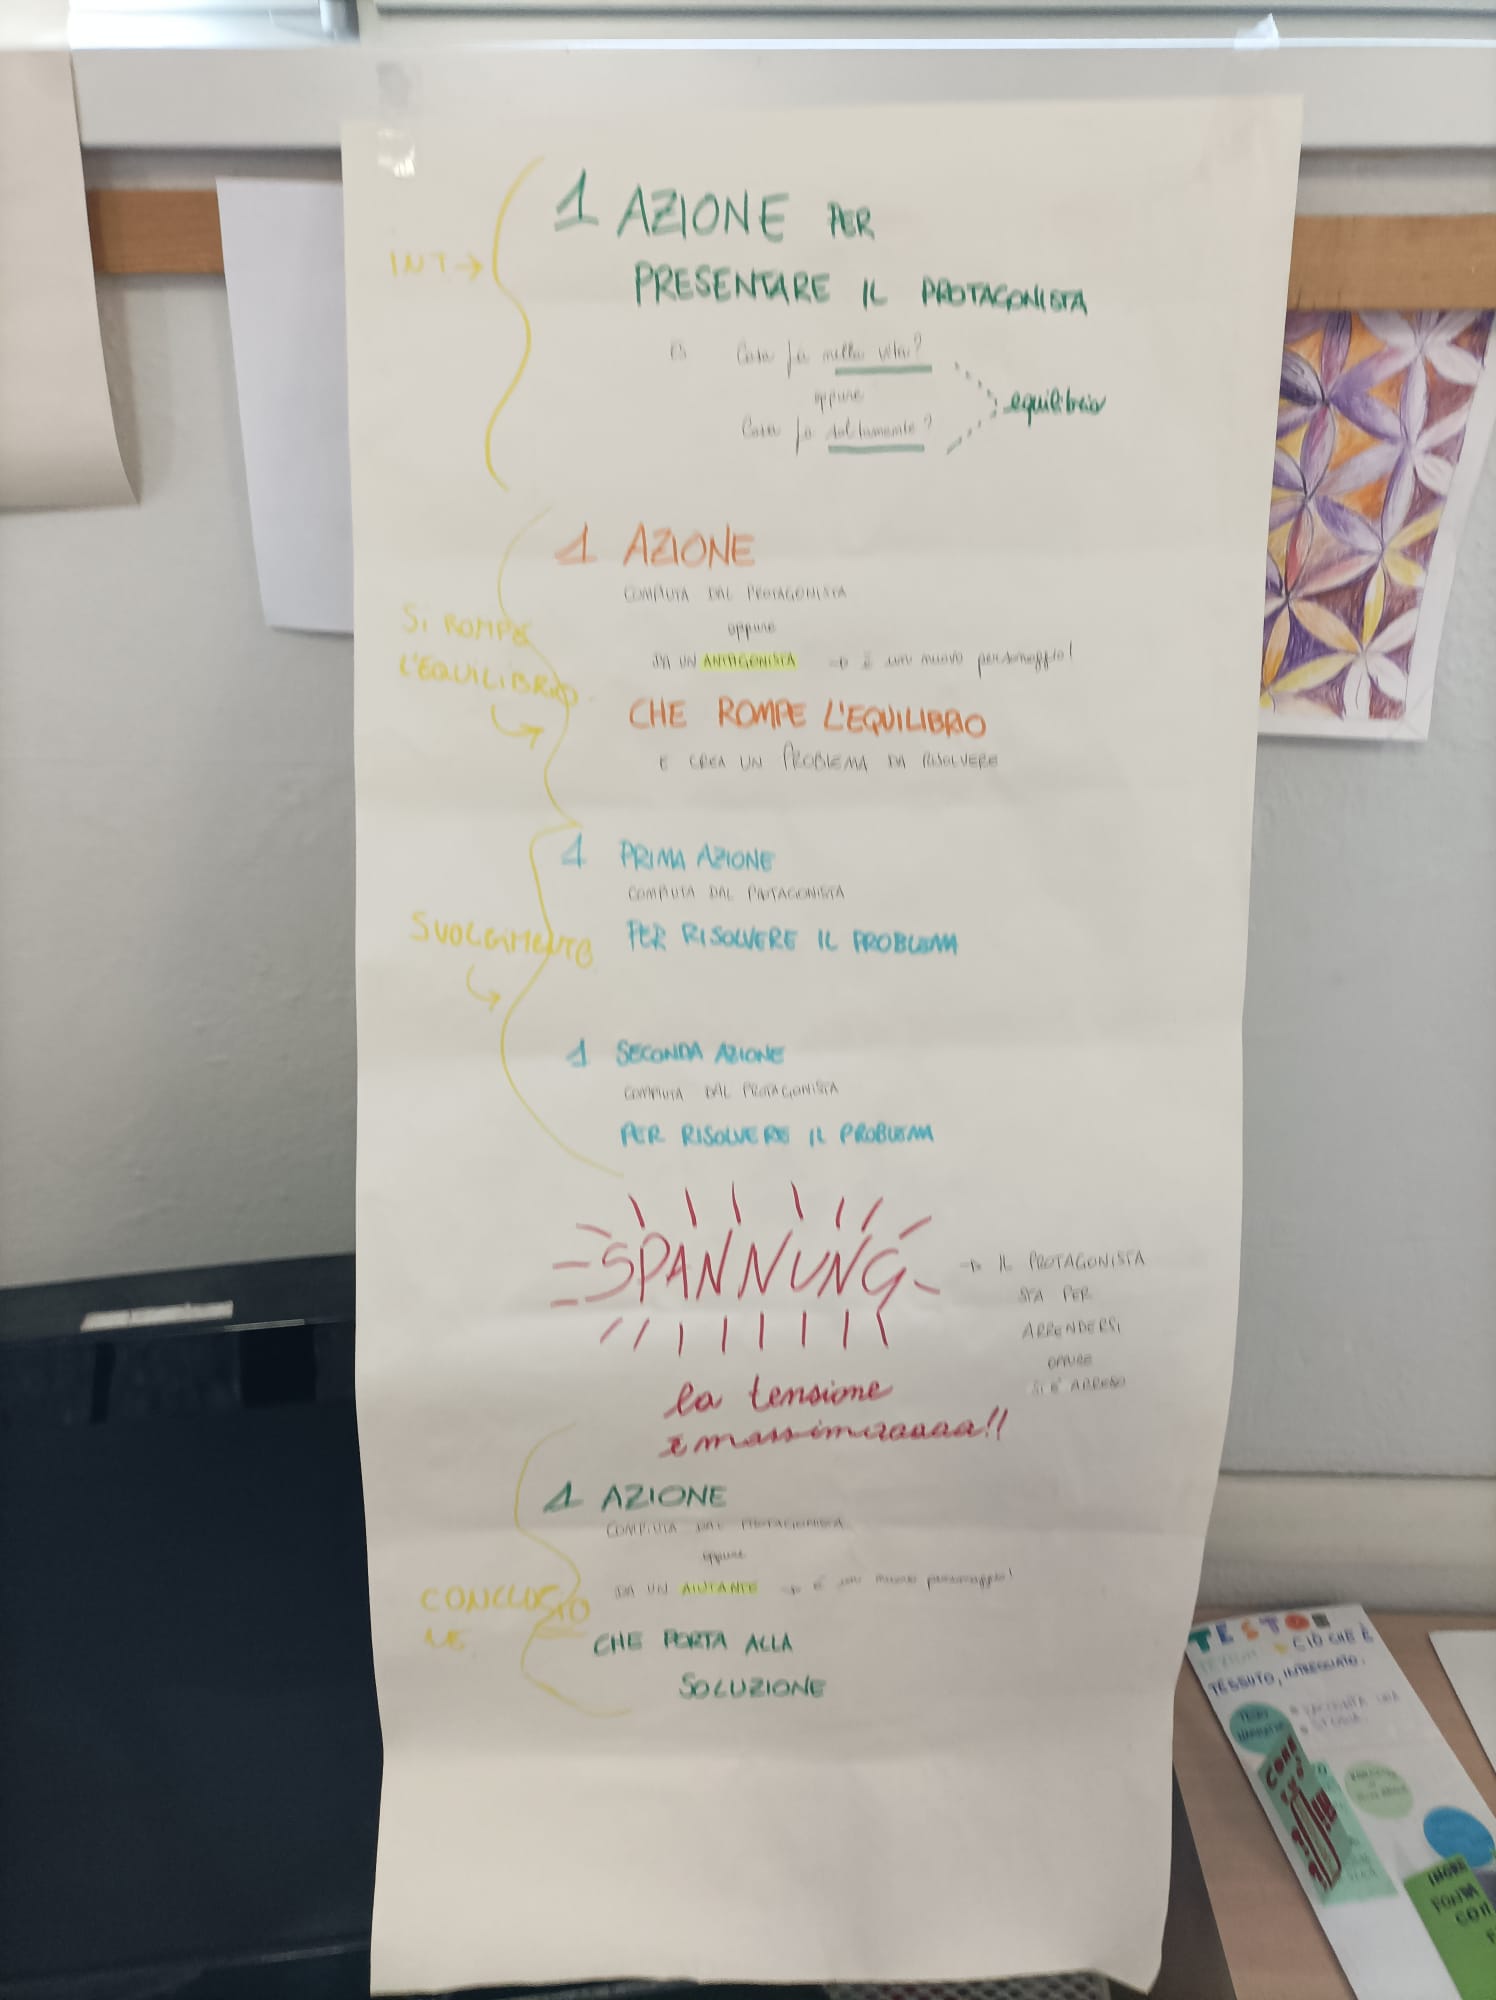 INT →
1 AZIONE PER
PRESENTARE IL PROTAGONISTA
Cosa fa nella vita?
oppure
Cosa fa solitamente?
equilibrio
SI ROMPE
L'EQUILIBRIO
1 AZIONE
COMPIUTA DAL PROTAGONISTA
oppure
DA UN ANTAGONISTA → è un nuovo personaggio!
CHE ROMPE L'EQUILIBRIO
E CREA UN PROBLEMA DA RISOLVERE
SVOLGIMENTO
1 PRIMA AZIONE
COMPIUTA DAL PROTAGONISTA
PER RISOLVERE IL PROBLEMA
1 SECONDA AZIONE
COMPIUTA DAL PROTAGONISTA
PER RISOLVERE IL PROBLEMA
SPANNUNG
→ IL PROTAGONISTA
STA PER
ARRENDERSI
OPPURE
SI È ARRESO
la tensione
è massimaaaaa!!
CONCLUSIO
NE
1 AZIONE
COMPIUTA DAL PROTAGONISTA
oppure
DA UN AIUTANTE → è un nuovo personaggio!
CHE PORTA ALLA
SOLUZIONE
CIÒ CHE È
TESSUTO, INTRECCIATO.